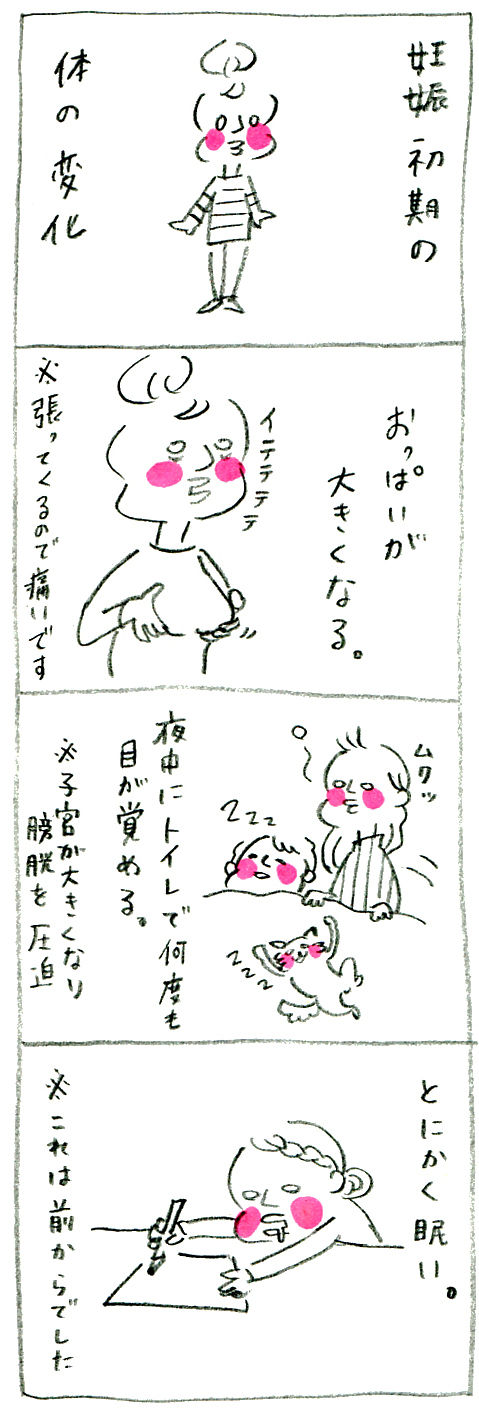 妊娠初期の
体の変化
おっぱいが
大きくなる。
イテテテテ
※張ってくるので痛いです
ムクッ
zzz
zzz
夜中にトイレで何度も
目が覚める。
※子宮が大きくなり
膀胱を圧迫
とにかく眠い。
※これは前からでした